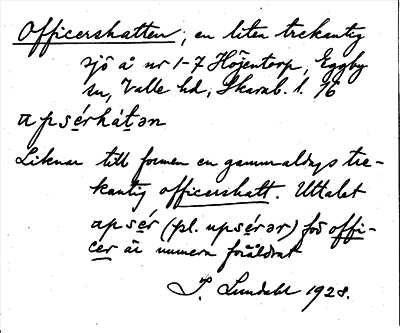 Officershatten, en liten trekantig
sjö å nr 1-7 Höjentorp, Eggby
sn, Valle hd, Skarab. l. 16
apsérhátən
Liknar till formen en gammaldags tre-
kantig officershatt. Uttalet
apsér (pl. upsérər) för offi-
cer är numera föråldrat
Lundahl 1928.